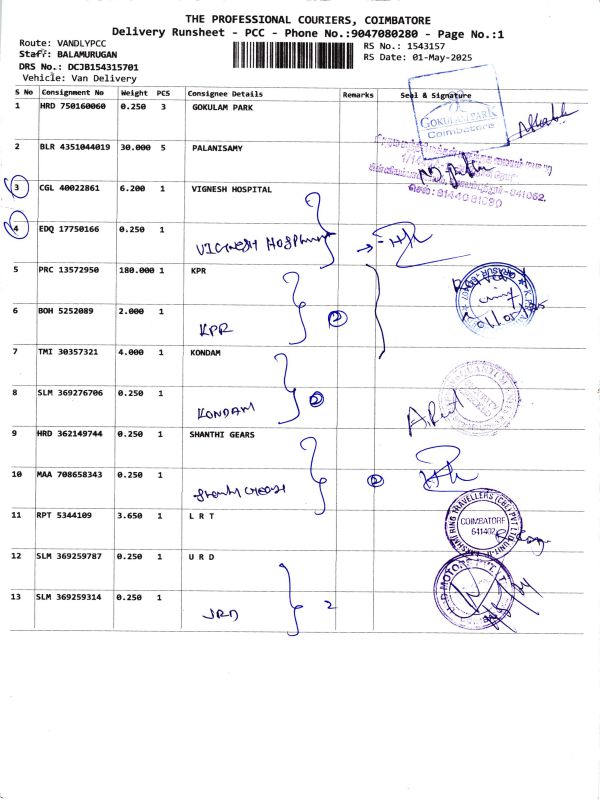 THE PROFESSIONAL COURIERS, COIMBATORE
Delivery Runsheet - PCC - Phone No.:9047080280 - Page No.:1
Route: VANDLYPCC
Staff: BALAMURUGAN
DRS No.: DCJB154315701
Vehicle: Van Delivery
RS No.: 1543157
RS Date: 01-May-2025
S No Consignment No Weight PCS Consignee Details Remarks Seal & Signature
1 HRD 750160060 0.250 3 GOKULAM PARK
GOKULAM PARK
Coimbatore
2 BLR 4351044019 30.000 5 PALANISAMY
3 CGL 40022861 6.200 1 VIGNESH HOSPITAL
4 EDQ 17750166 0.250 1 VIGNESH HOSPITAL
5 PRC 13572950 180.000 1 KPR
6 BOH 5252089 2.000 1 KPR 2
7 TMI 30357321 4.000 1 KONDAM
8 SLM 369276706 0.250 1 KONDAM 2
9 HRD 362149744 0.250 1 SHANTHI GEARS
10 MAA 708658343 0.250 1 2
11 RPT 5344109 3.650 1 L R T
COIMBATORE
641402
12 SLM 369259787 0.250 1 U R D
13 SLM 369259314 0.250 1 2